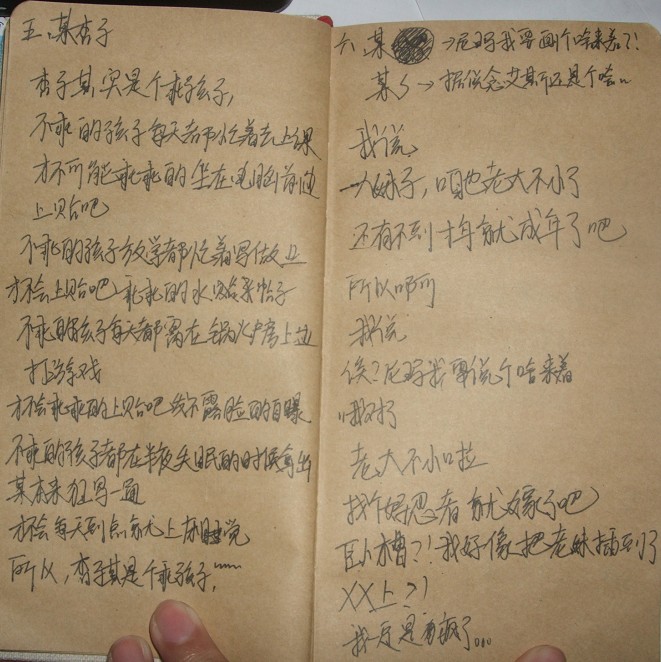 五、某杏子
杏子其实是个乖孩子,
不乖的孩子每天都忙着去上课
才不可能乖乖的坐在电脑前逛
上贴吧
不乖的孩子放学都忙着写做业
才不会上贴吧乖乖的水帖
不乖的孩子每天都窝在锅炉房上
打游戏
才不会乖乖的上贴吧发不露脸的自曝
不乖的孩子都在半夜失眠的时候拿出
某本来狂写一通
才会每天到点就上床睡觉
所以,杏子其是个乖孩子,
六、某 →尼玛我要画个啥来着?!
某 →据说念艾斯还是个啥
我说,
大妹子,咱也老大不小了
还有不到半年就成年了吧
所以啊
我说
诶?尼玛我要说个啥来着
哦对了
老大不小啦
找个好忍者就嫁了吧
卧槽?!我好像把老妹插到了
XX上?!
我一定是看板了...